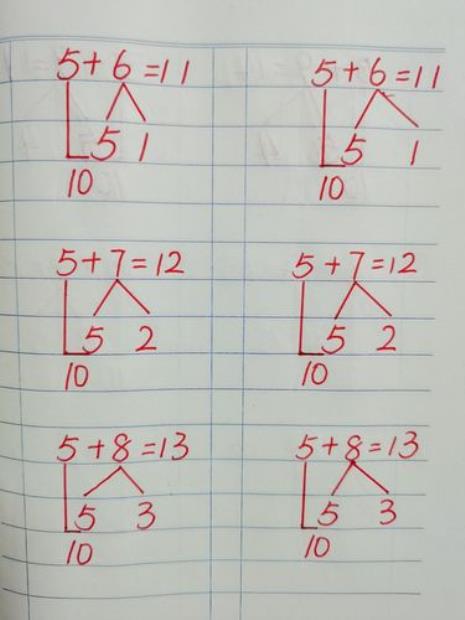 5+6=11 5+6=11
5 1 5 1
10 10
5+7=12 5+7=12
5 2 5 2
10 10
5+8=13 5+8=13
5 3 5 3
10 10